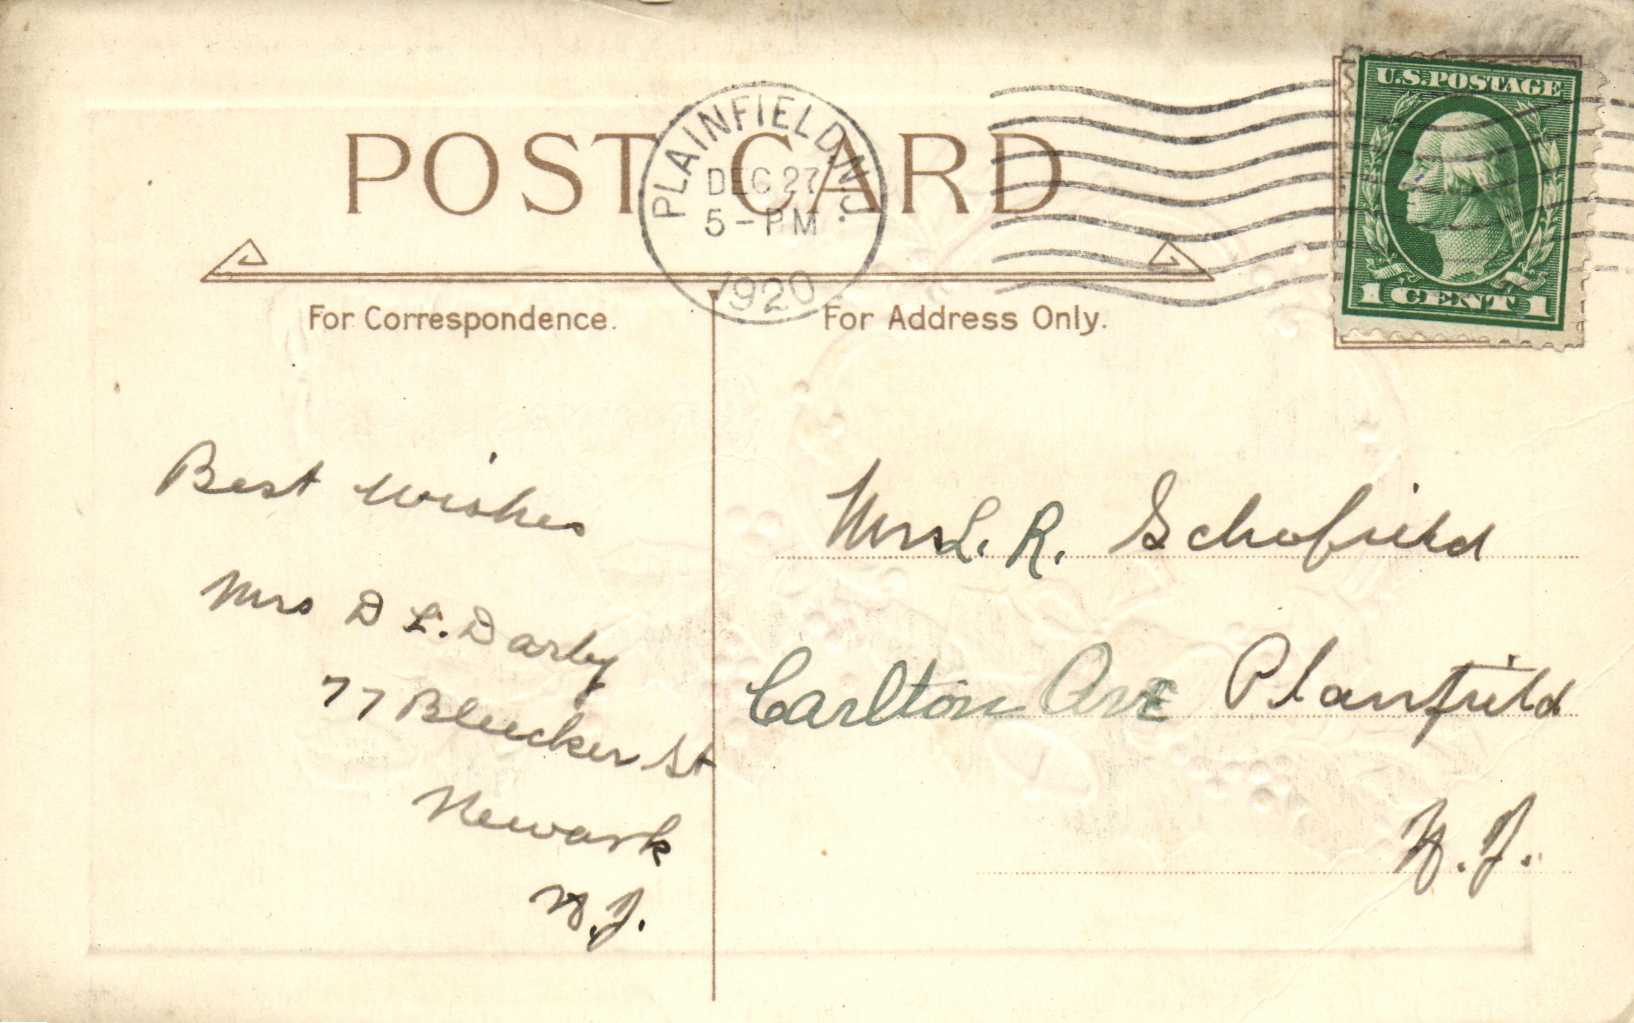 POST CARD
PLAINFIELD, N.J.
DEC 27
5-PM
1920
U.S. POSTAGE
1 CENT 1
For Correspondence.
For Address Only.
Best wishes
Mrs D L. Darby
77 Bleecker St
Newark
N.J.
Mrs L. R. Schofield
Carlton Ave Planfield
N.J.